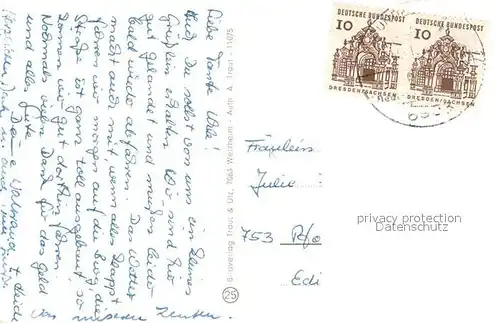 Liebe Tante Lilli!
Auch Du sollst von uns ein kleines
Grüßlein erhalten. Wir sind hier
gut gelandet und müssen leider
bald wieder abfahren. Das Wetter
macht auch mit, wenn alles klappt
fahren wir morgen auf die Burg, die
Straße ist ganz toll ausgebaut, so
können wir gut dorthin fahren.
Nochmals vielen Dank für das Geld
und alles Gute
Deine Waltraud + Heide
Herzlichen Dank auch
von unseren
Bildverlag Traut & Utz, 7063 Welzheim - Aufn. A. Traut - 11075
25
DEUTSCHE BUNDESPOST
10
DRESDEN/SACHSEN
DEUTSCHE BUNDESPOST
10
DRESDEN/SACHSEN
Fräulein
Julie
753 Pfo
Edi
privacy protection
Datenschutz